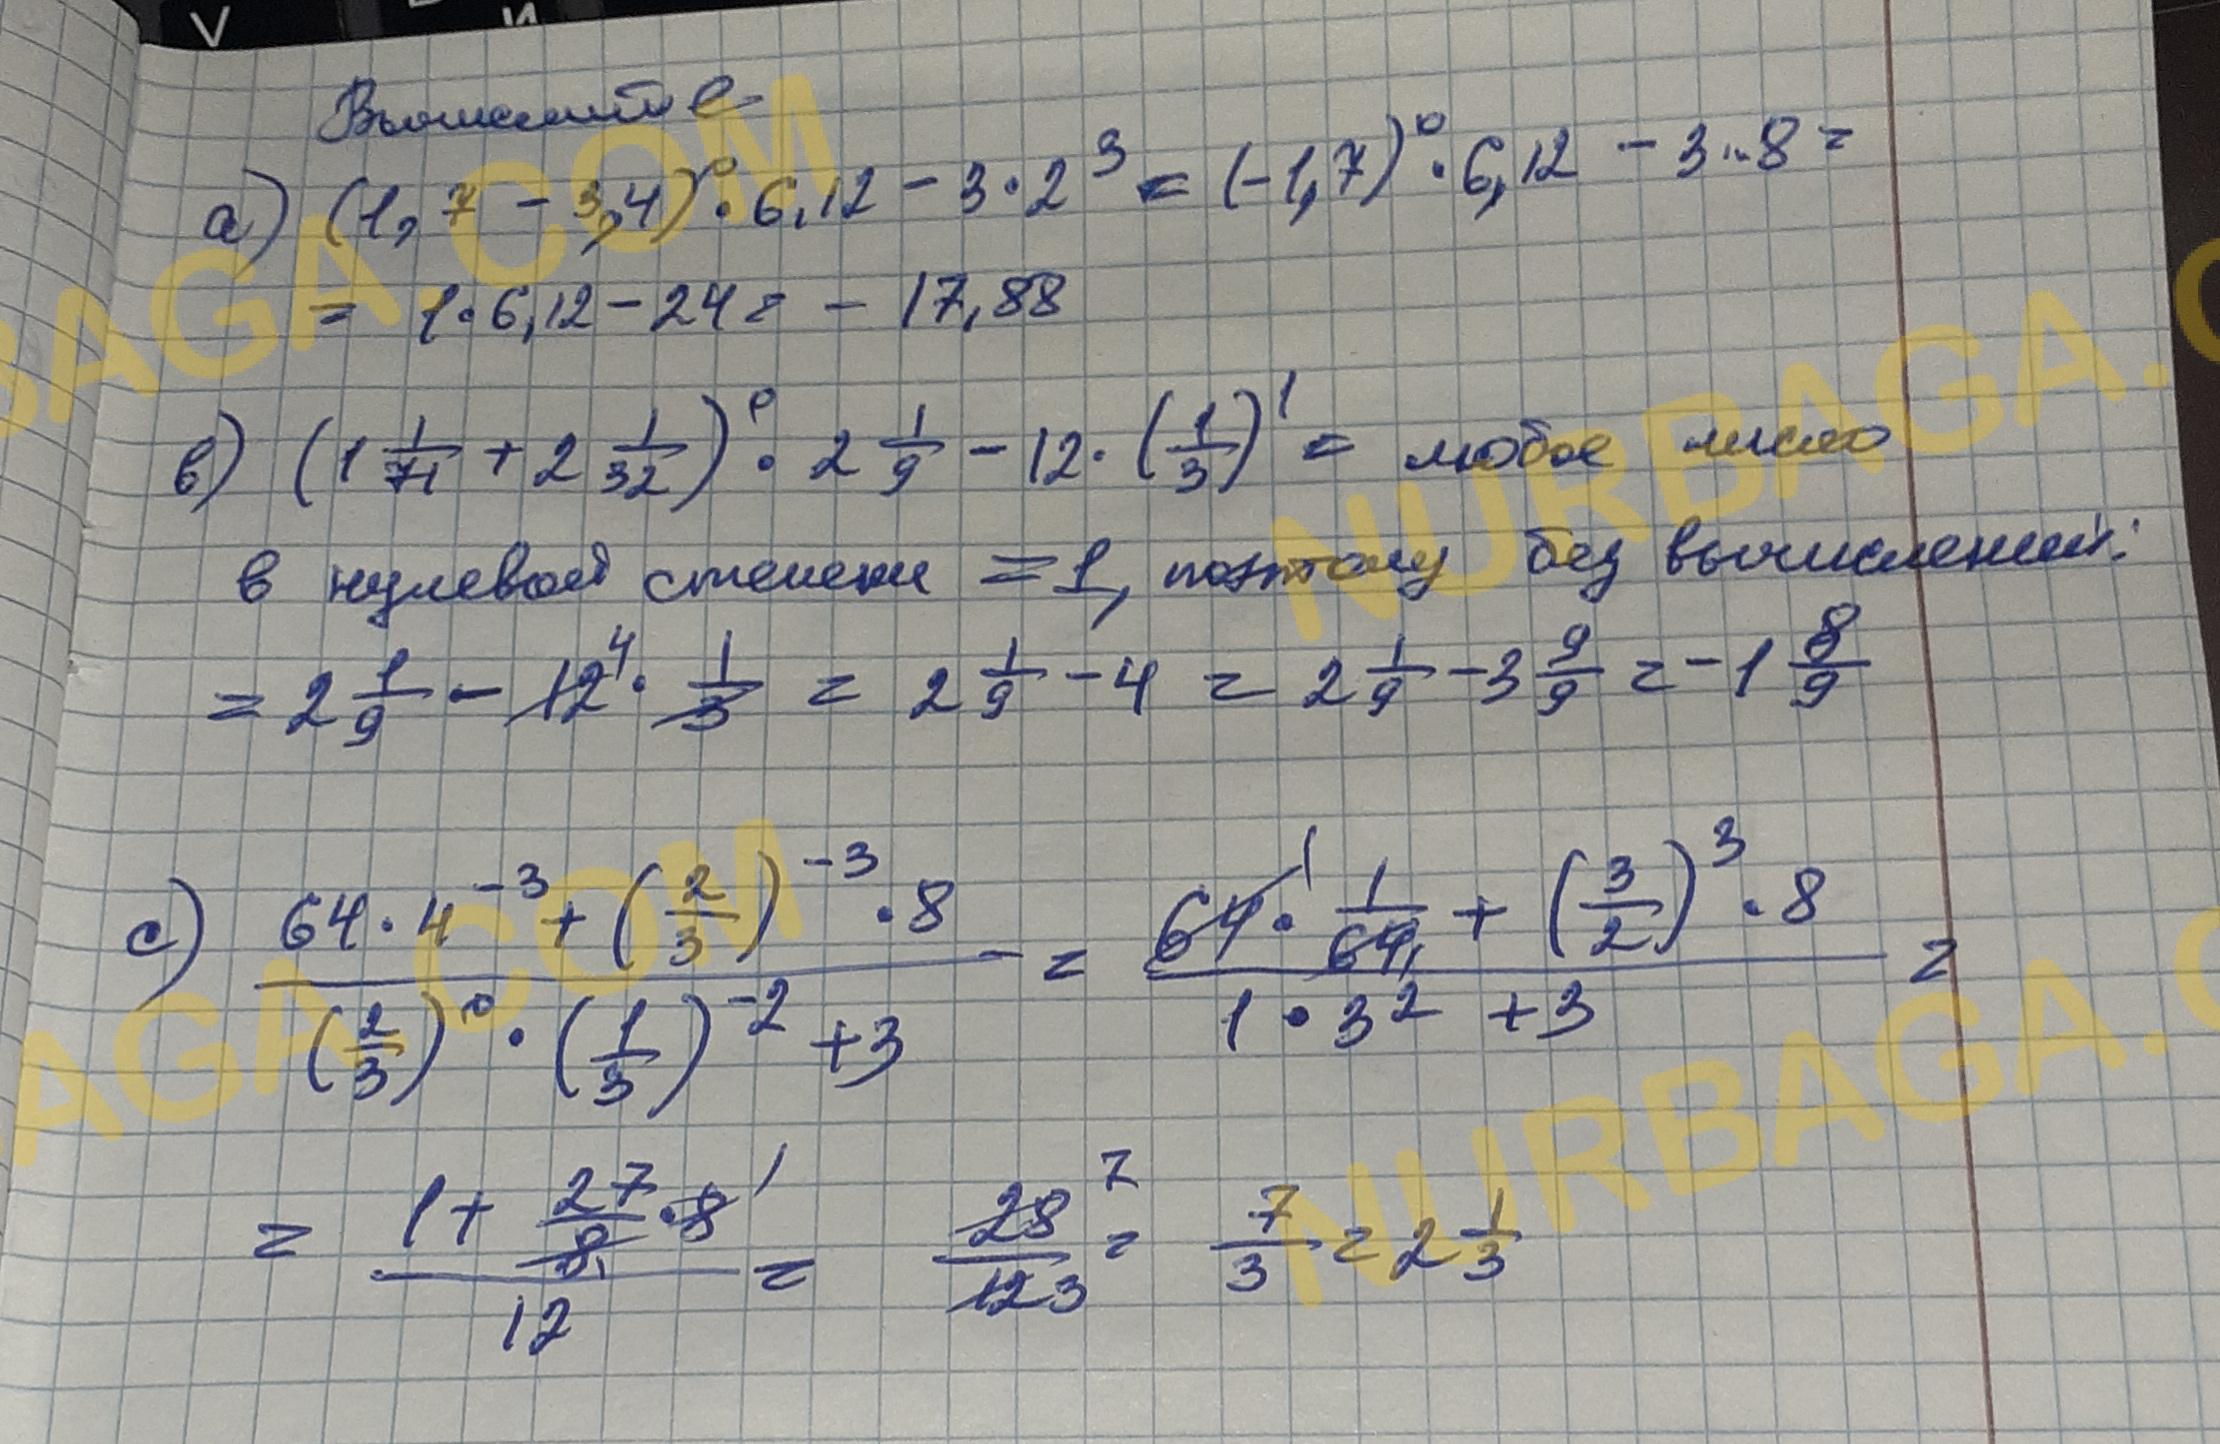 Вычислите
а) (1,7 − 3,4)⁰ · 6,12 − 3 · 2³ = (−1,7)⁰ · 6,12 − 3 · 8 =
= 1 · 6,12 − 24 = − 17,88
в) (1 1/71 + 2 1/32)⁰ · 2 1/9 − 12 · (1/3)¹ = любое число
в нулевой степени = 1, поэтому без вычислений:
= 2 1/9 − 12⁴ · 1/3 = 2 1/9 − 4 = 2 1/9 − 3 9/9 = − 1 8/9
с) (64 · 4⁻³ + (2/3)⁻³ · 8) / ((2/3)⁰ · (1/3)⁻² + 3) = (64 ¹ · 1/64 ₁ + (3/2)³ · 8) / (1 · 3² + 3) =
= (1 + 27/8 ₁ · 8 ¹) / 12 = 28 ⁷/12 ₃ = 7/3 = 2 1/3
NURBAGA.COM